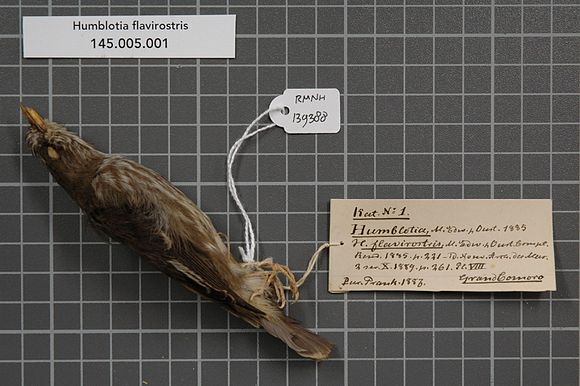 Humblotia flavirostris
145.005.001
RMNH
139388
Kat. No 1.
Humblotia, M. Edw. & Oust. 1885
H. flavirostris, M. Edw. & Oust. Compt.
Rend. 1885. p. 221 Arch. des Mus.
2 ser. X. 1889. p. 261. Pl. VIII
Grand Comoro